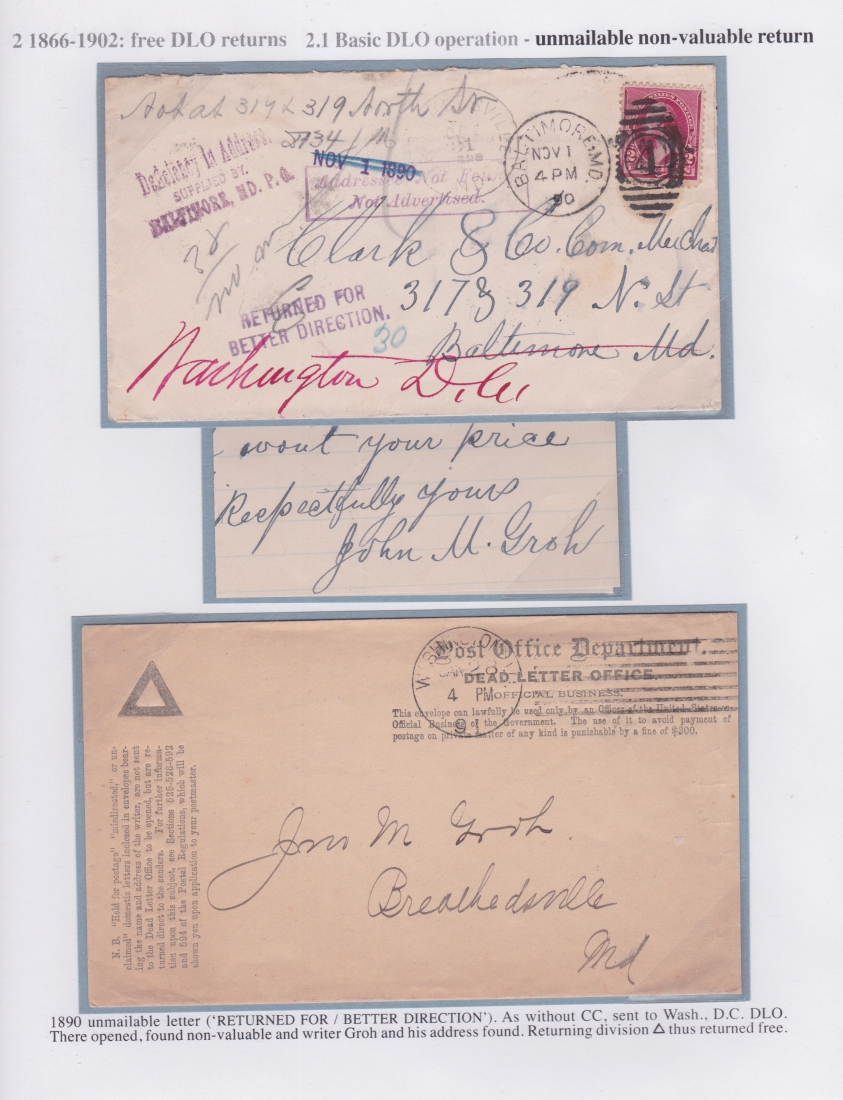 2 1866-1902: free DLO returns 2.1 Basic DLO operation - unmailable non-valuable return
Not at 317 & 319 North St
Deficiency In Address,
SUPPLIED BY
BALTIMORE, MD. P. O.
NOV 1 1890
Addressee Not
Not Advertised.
BALTIMORE, MD.
NOV 1
4 PM
90
1
Clark & Co. Com. Merchat
317 & 319 N. St
Baltimore Md.
RETURNED FOR
BETTER DIRECTION.
30
Washington D.C.
want your price
Respectfully yours
John M. Groh
Post Office Department.
DEAD LETTER OFFICE.
OFFICIAL BUSINESS.
This envelope can lawfully be used only by an Officer of the United States on
Official Business of the Government. The use of it to avoid payment of
postage on private matter of any kind is punishable by a fine of $300.
WASHINGTON
4 PM
91
N. B. "Held for postage" "misdirected," or un-
claimed" domestic letters inclosed in envelopes bear-
ing the name and address of the writer, are not sent
to the Dead Letter Office to be opened, but are re-
turned direct to the senders. For further informa-
tion upon this subject, see Sections 525-526-592
and 594 of the Postal Regulations, which will be
shown you upon application to your postmaster.
Jno M Groh
Breathedsville
Md
1890 unmailable letter ('RETURNED FOR / BETTER DIRECTION'). As without CC, sent to Wash., D.C. DLO.
There opened, found non-valuable and writer Groh and his address found. Returning division Δ thus returned free.